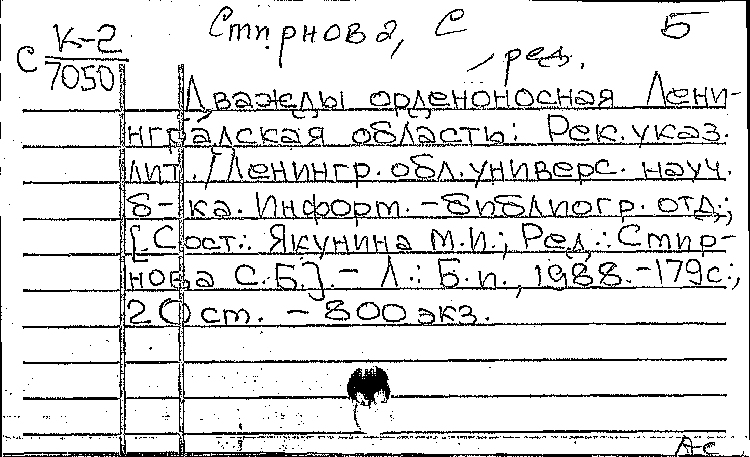 Смирнова, С Б
С К-2
7050
ред.
Дважды орденоносная Лени-
нградская область: Рек. указ.
лит. / Ленингр. обл. универс. науч.
б-ка. Информ. - библиогр. отд.;
[Сост.: Якунина М.И.; Ред.: Смир-
нова С.Б.]. - Л.: Б.и., 1988. - 179с.,
20 ст. - 800 экз.
А-С